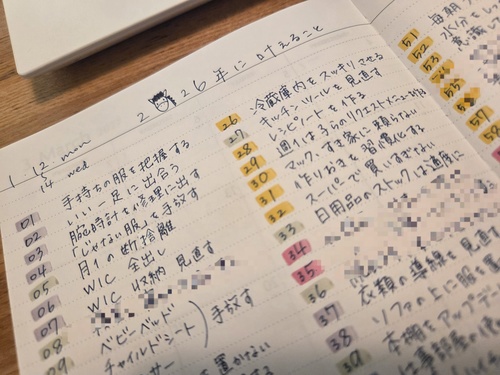 2 26年に叶えること
1/12 mon
14 wed
01 手持ちの服を把握する
02 いい一足に出会う
03 腕時計を修理に出す
04 「じゃない服」を手放す
05 月1の断捨離
06 WIC 全出し
07 WIC 収納 見直す
08
ベビーベッド
09 チャイルドシート
手放す
26 冷蔵庫内をスッキリさせる
27 キッチンツールを見直す
28 レシピノートを作る
29 週1は リクエストメニューを作る
30 マック、すき家に頼らない
31 作りおきを習慣化する
32 スーパーで買いすぎない
33 日用品のストックは適度に
34
35
36 衣類の導線を見直
37 ソファの上に服を
38 本棚をアップデ
39 仕事部屋の
51 毎朝
52 水分
53 意識